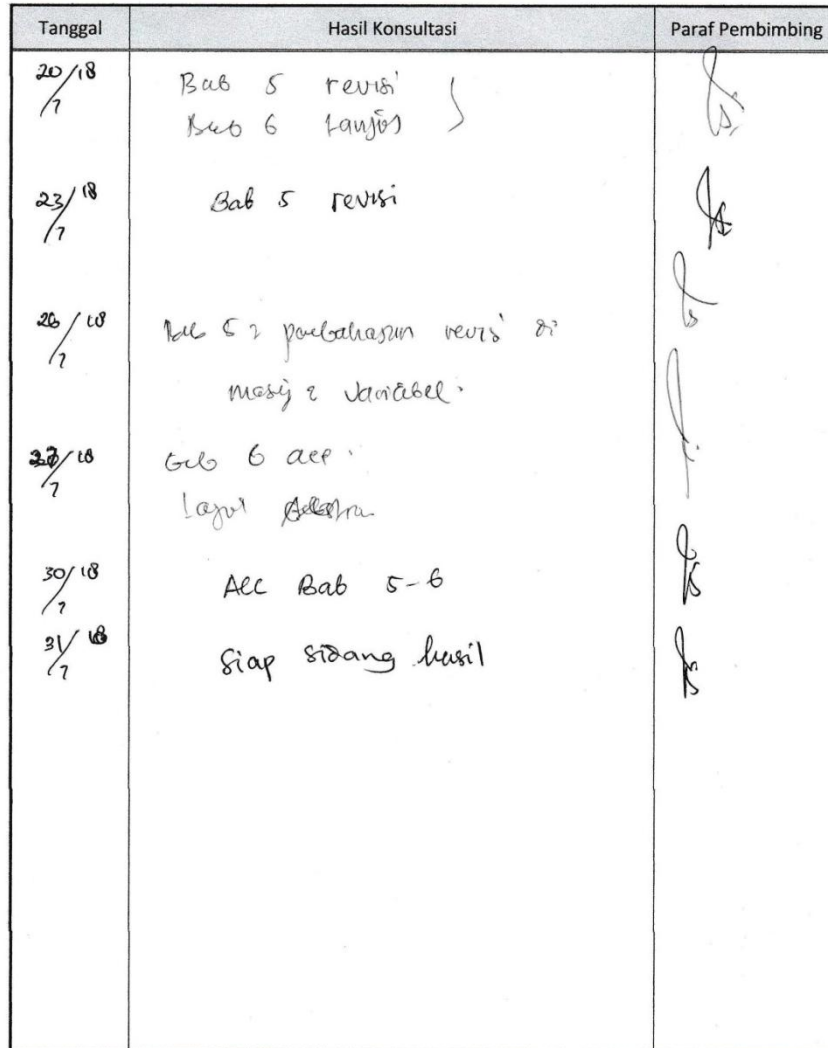 Tanggal Hasil Konsultasi Paraf Pembimbing
20/18 /7 Bab 5 revisi
Bab 6 lanjut
23/18 /7 Bab 5 revisi
26/18 /7 Bab 5 : pembahasan revisi di
masing2 variabel.
/18 /7 Bab 6 acc.
30/18 /7 Acc Bab 5-6
31/18 /7 Siap sidang hasil